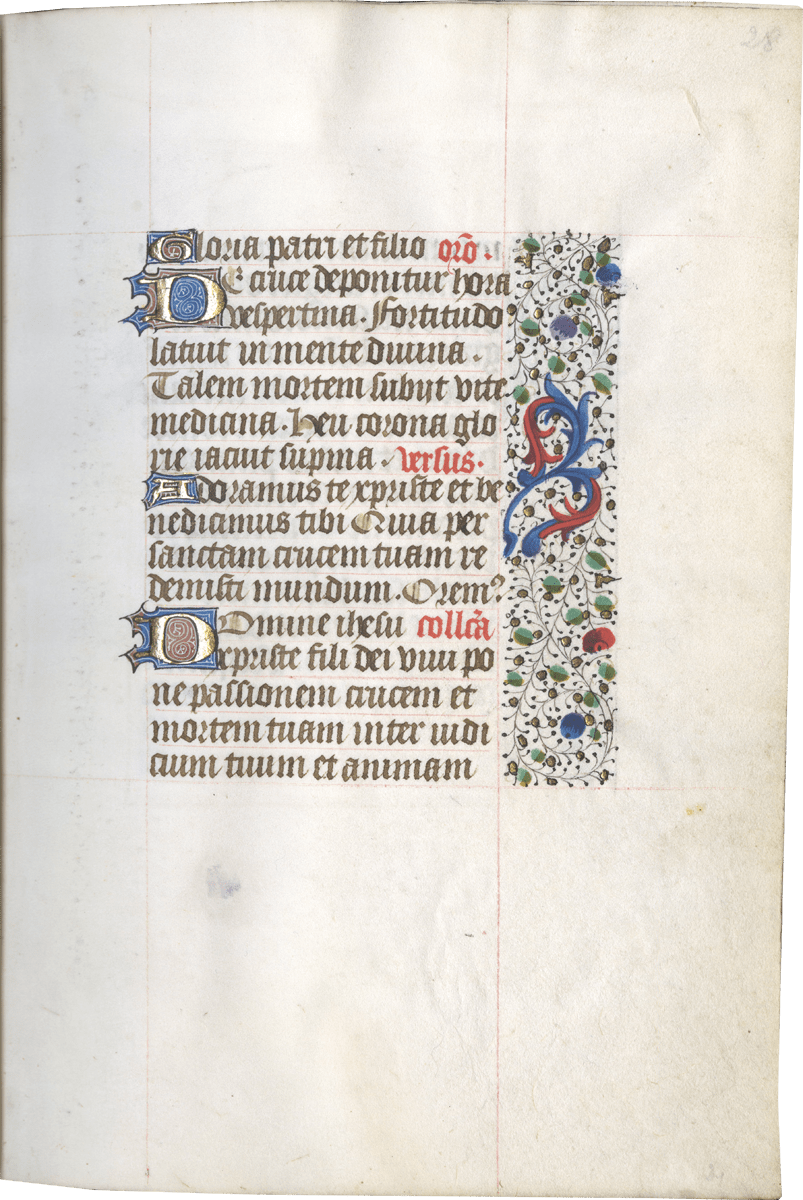 28
Gloria patri et filio orō.
DE cruce deponitur hora
vespertina. Fortitudo
latuit in mente divina.
Talem mortem subijt vite
medicina. Heu corona glo
rie iacuit supina. versus.
Adoramus te xpriste et be
nedicimus tibi Quia per
sanctam crucem tuam re
demisti mundum. Orem?
DOmine ihesu collcā
xpriste fili dei vivi po
ne passionem crucem et
mortem tuam inter iudi
cium tuum et animam